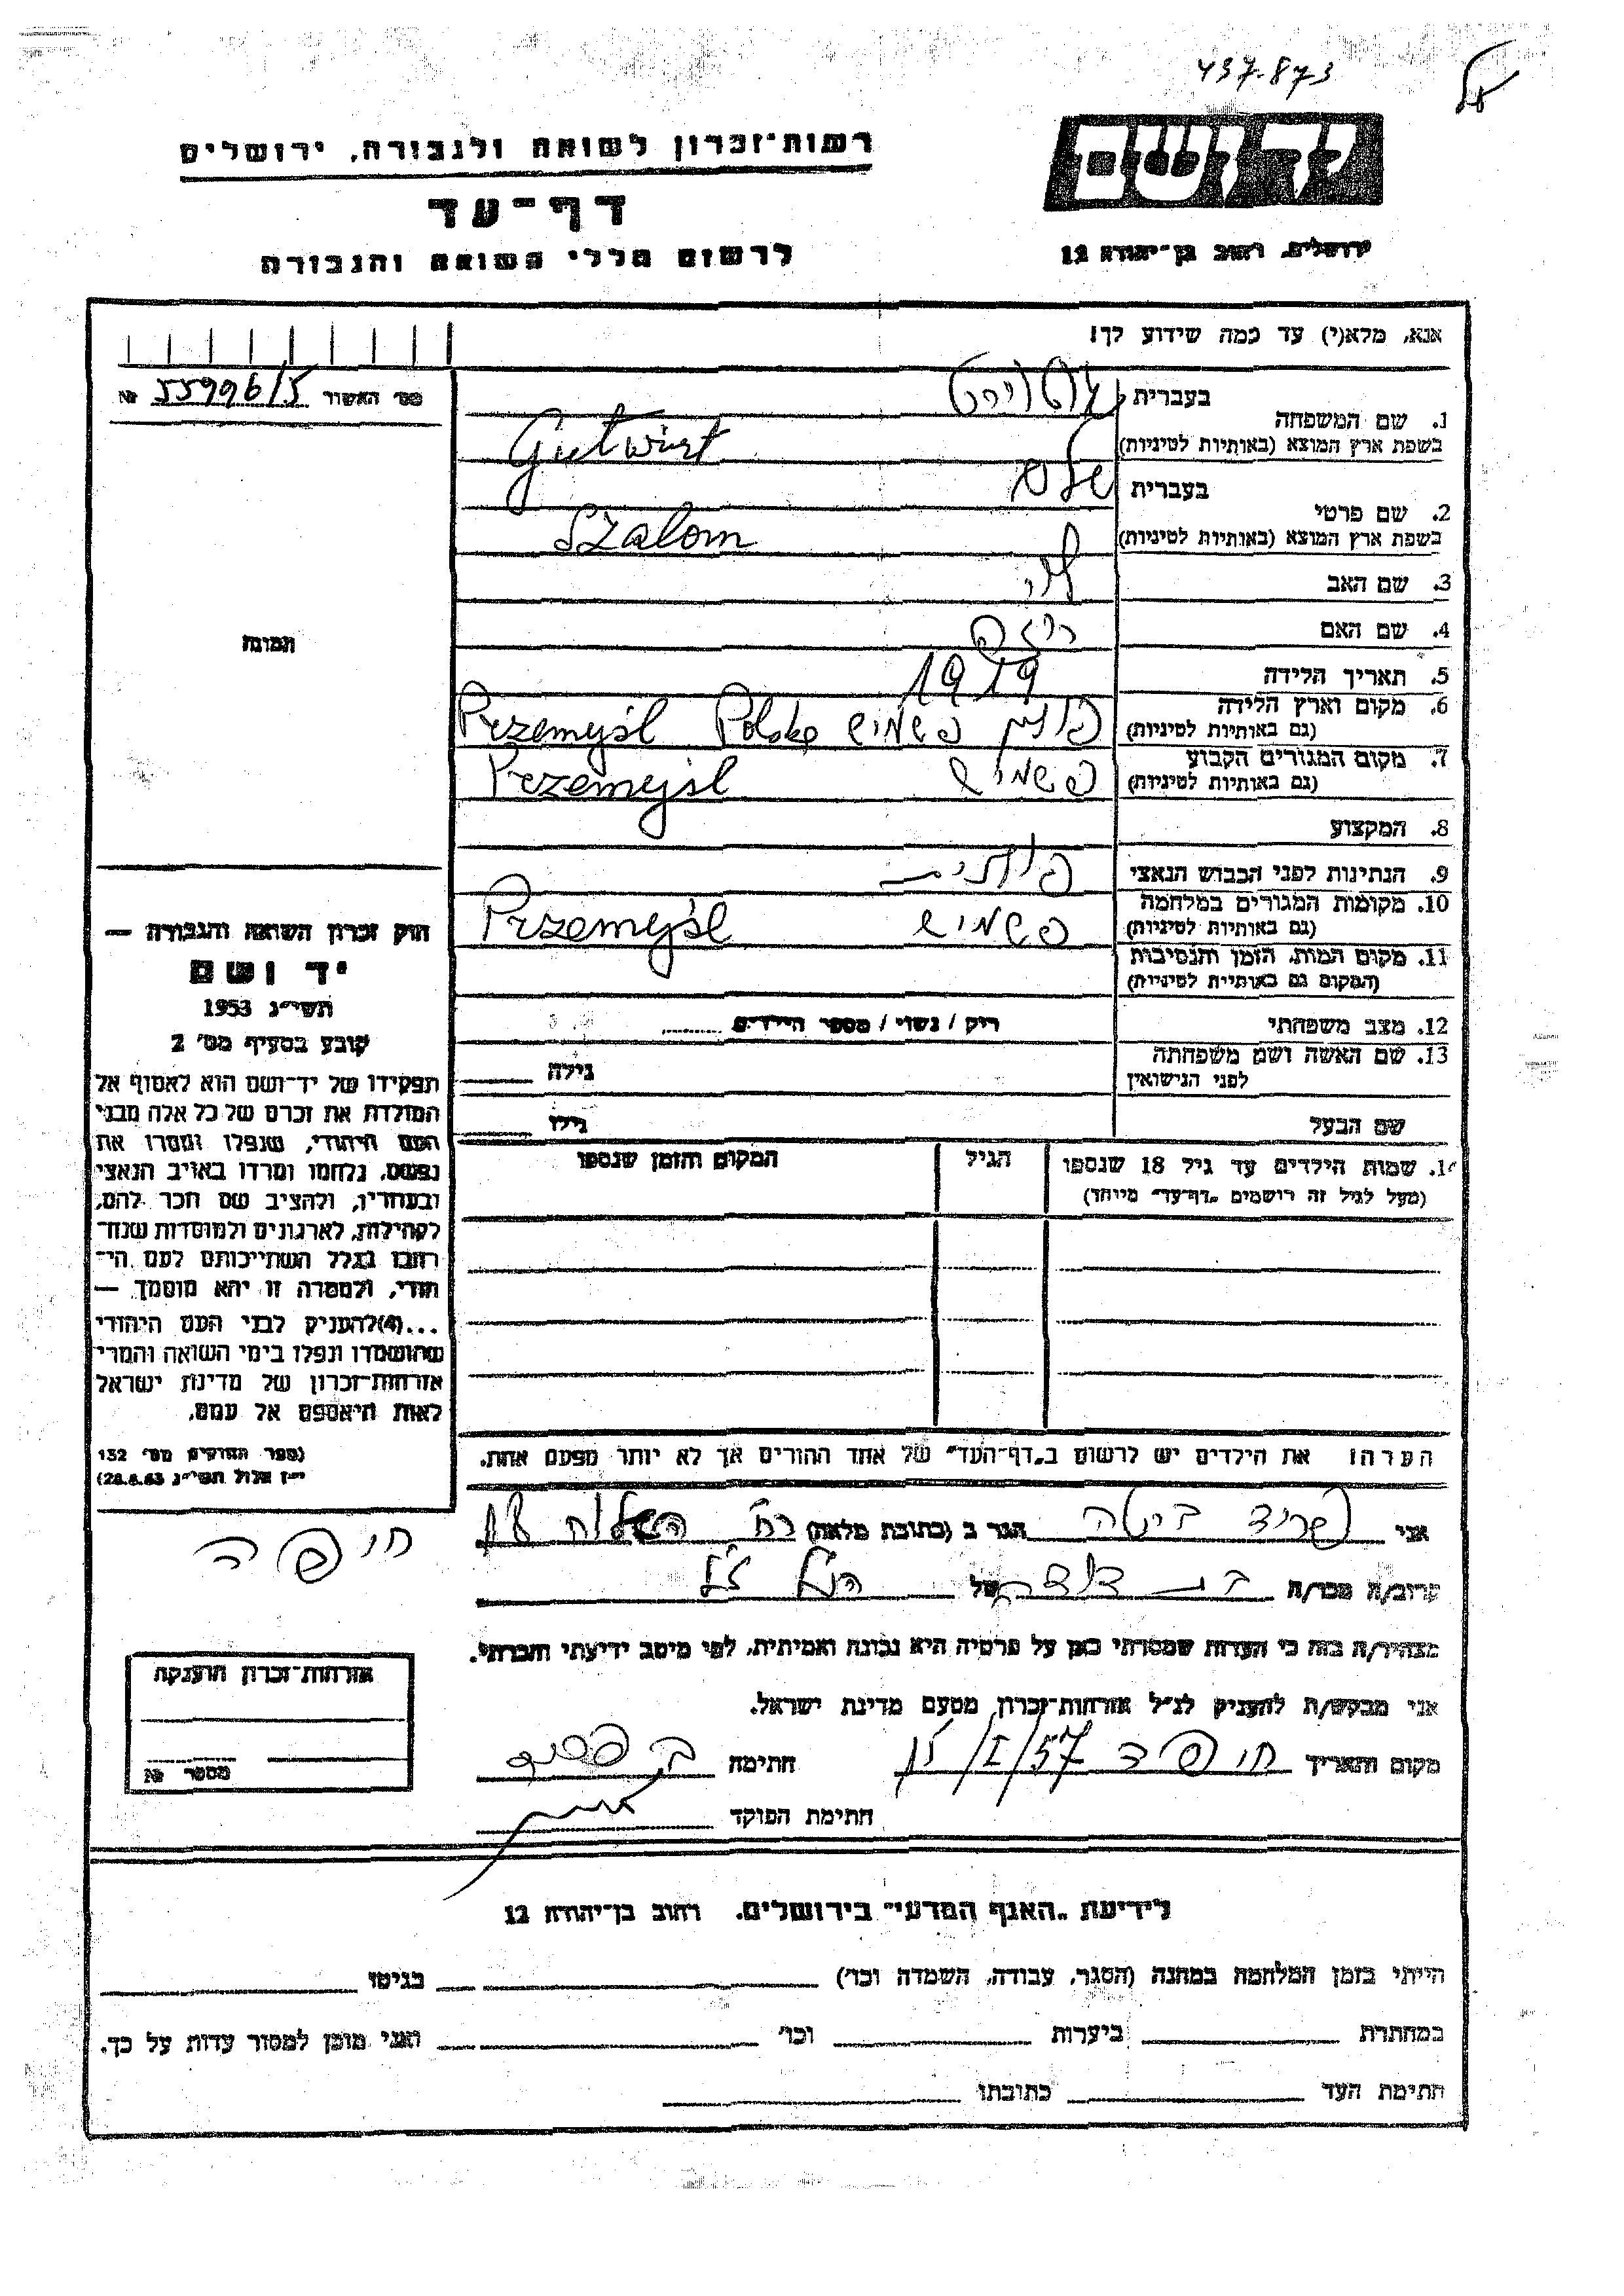 437-873
רשות־זכרון לשואה ולגבורה, ירושלים
יד ושם
דף־עד
לרשום חללי השואה והגבורה
ירושלים, רחוב בן־יהודה 12
אנא, מלא(י) עד כמה שידוע לך!
מס׳ האשור 55996/5 №
1. שם המשפחה בעברית גוטווירט
בשפת ארץ המוצא (באותיות לטיניות) Gutwirt
2. שם פרטי בעברית שלום
בשפת ארץ המוצא (באותיות לטיניות) Szalom
3. שם האב
4. שם האם
5. תאריך הלידה 1919
6. מקום וארץ הלידה
(גם באותיות לטיניות) פולין פשמיש Przemyśl Polska
7. מקום המגורים הקבוע
(גם באותיות לטיניות) פשמישל Przemyśl
8. המקצוע
9. הנתינות לפני הכבוש הנאצי פולנית
10. מקומות המגורים במלחמה
(גם באותיות לטיניות) פשמיש Przemyśl
11. מקום המות, הזמן והנסיבות
(המקום גם באותיות לטיניות)
12. מצב משפחתי רוק / נשוי / מספר הילדים
13. שם האשה ושם משפחתה גילה
לפני הנישואין
שם הבעל גילו
שמות הילדים עד גיל 18 שנספו הגיל המקום והזמן שנספו
(מעל לגיל זה רושמים „דף־עד” מיוחד)
הערה: את הילדים יש לרשום ב„דף־העד” של אחד ההורים אך לא יותר מפעם אחת.
תמונה
חוק זכרון השואה והגבורה —
יד ושם
תשי״ג 1953
קובע בסעיף מס׳ 2
תפקידו של יד־ושם הוא לאסוף אל
המולדת את זכרם של כל אלה מבני
העם היהודי, שנפלו ומסרו את
נפשם, נלחמו ומרדו באויב הנאצי
ובעוזריו, ולהציב שם וזכר להם,
לקהילות, לארגונים ולמוסדות שנח־
רבו בגלל השתייכותם לעם הי־
הודי, ולמטרה זו יהא מוסמך —
...(4)להעניק לבני העם היהודי
שהושמדו ונפלו בימי השואה והמרי
אזרחות־זכרון של מדינת ישראל
לאות היאספם אל עמם.
(ספר החוקים מס׳ 132
י״ז אלול תשי״ג 28.8.53)
אני הגר ב (כתובת מלאה) רח׳ השלוח
חיפה
קרוב/ה מכר/ה בת דודה של הנ״ל ז״ל
מצהיר/ה בזה כי העדות שמסרתי כאן על פרטיה היא נכונה ואמיתית, לפי מיטב ידיעתי והכרתי.
אני מבקש/ת להעניק לנ״ל אזרחות־זכרון מטעם מדינת ישראל.
מקום ותאריך חיפה I/57 חתימה
חתימת הפוקד
אזרחות־זכרון הוענקה
מספר №
לידיעת „האגף המדעי” בירושלים, רחוב בן־יהודה 12
הייתי בזמן המלחמה במחנה (הסגר, עבודה, השמדה וכו׳) בגיטו
במחתרת ביערות וכו׳ והנני מוכן למסור עדות על כך.
חתימת העד כתובתו